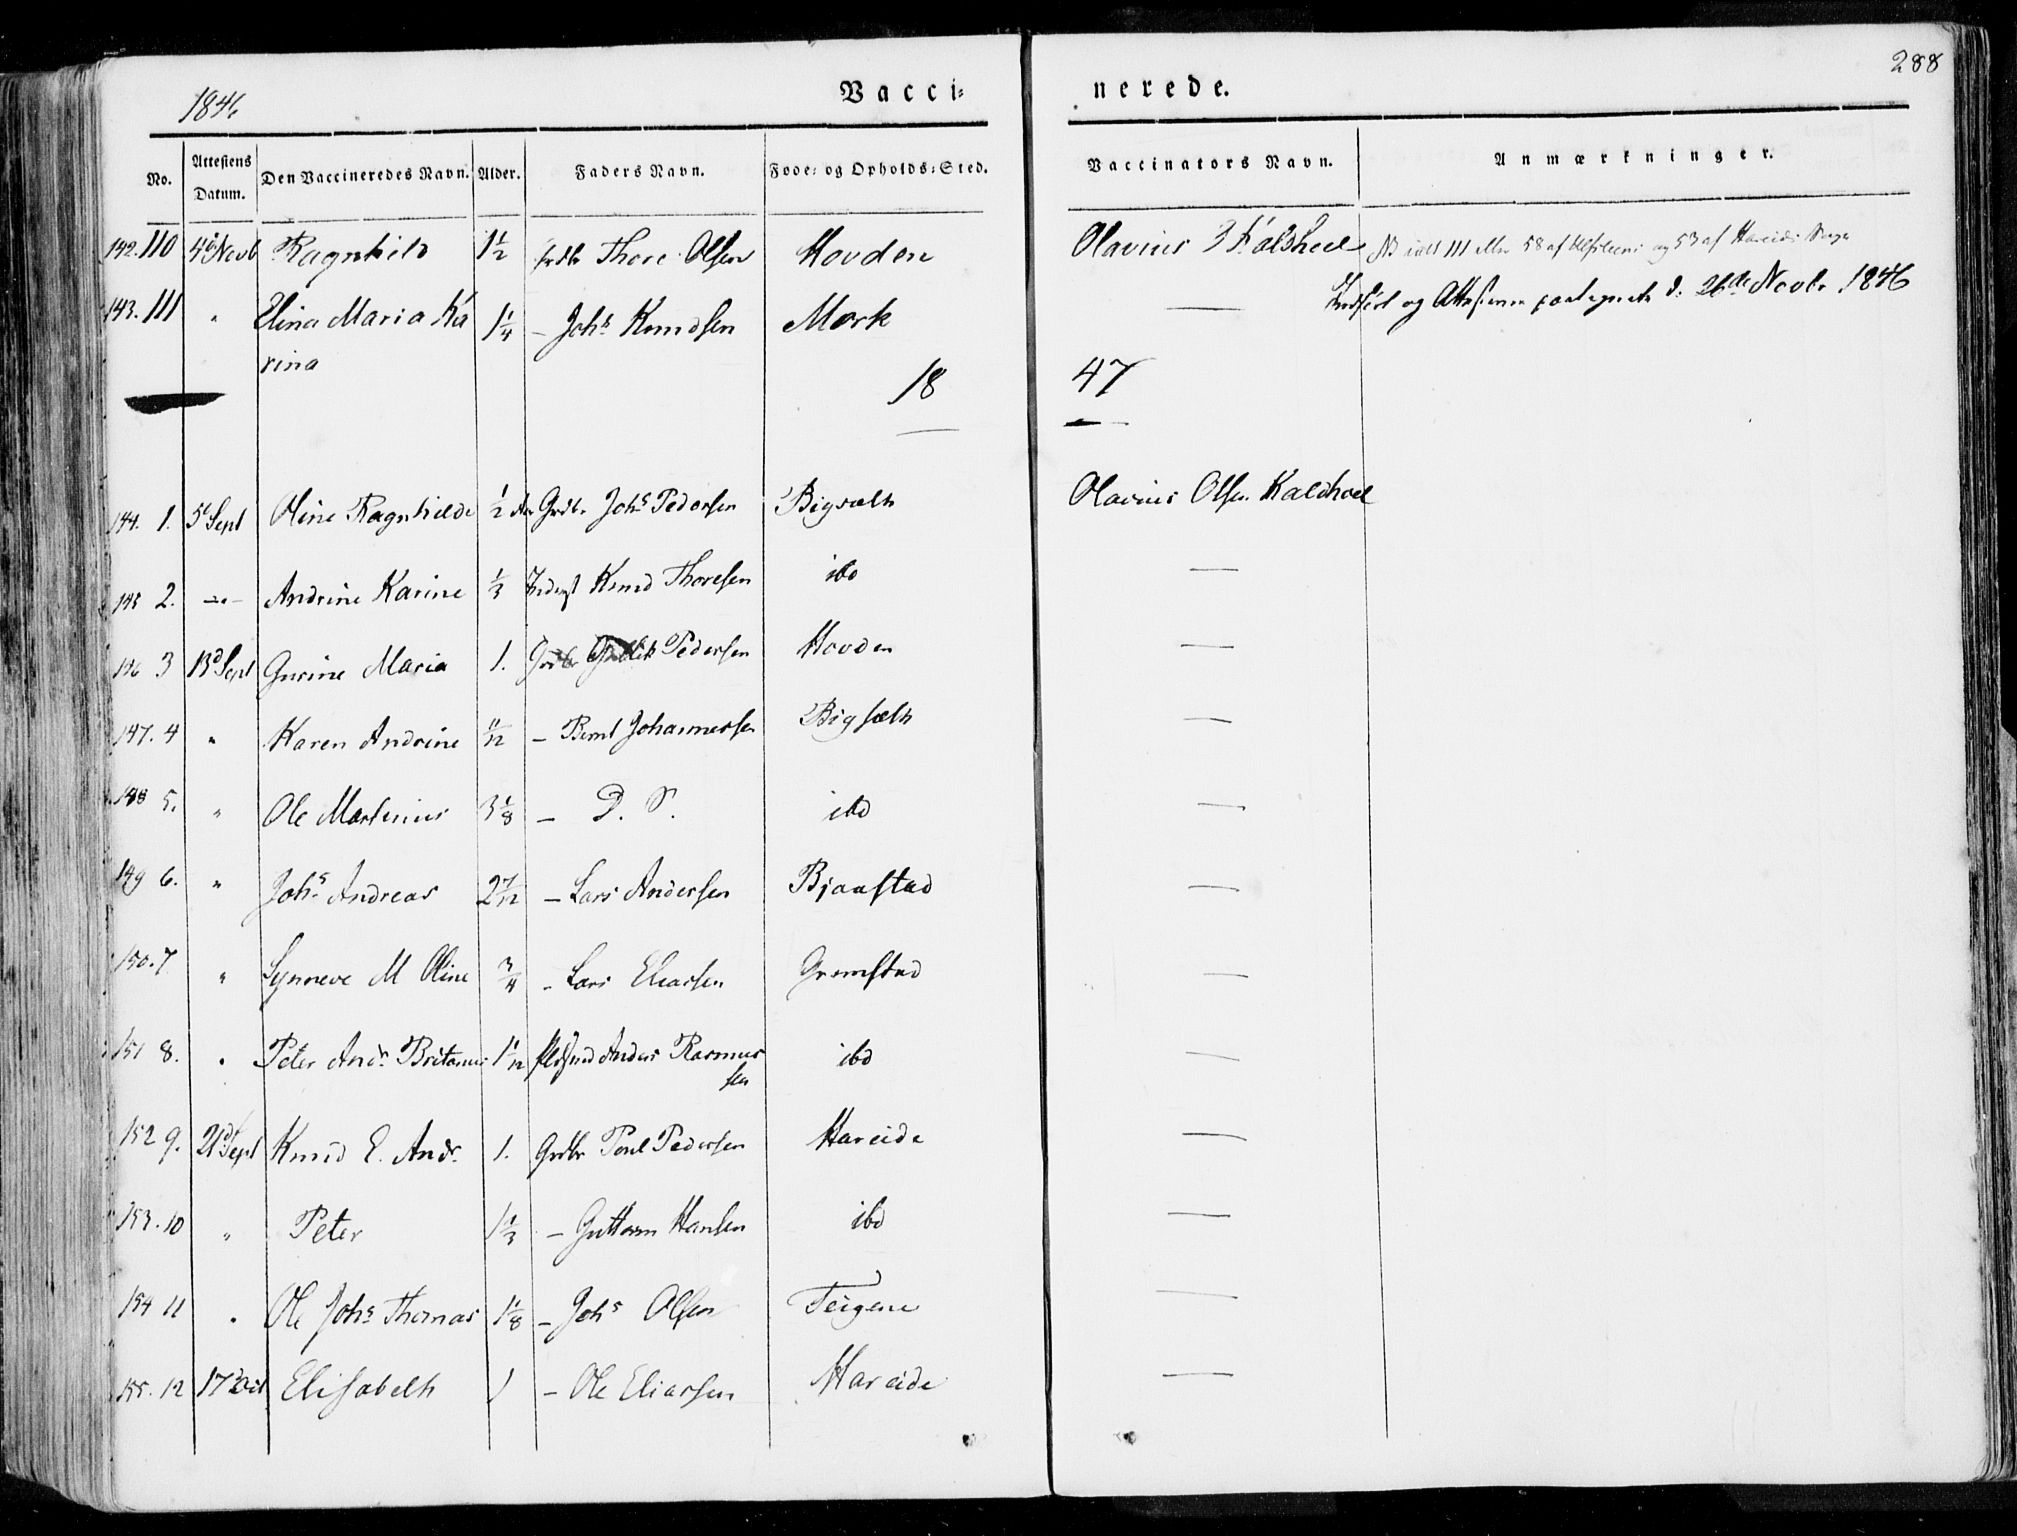 288
1846
Vacci=
nerede.
No.
Attestens Datum.
Den Vaccineredes Navn.
Alder.
Faders Navn.
Føde= og Opholds=Sted.
Vaccinators Navn.
Anmærkninger.
142. 110 4d Novb Ragnhild 1½ Thore Olsen Hovden Olavius
NB ialt 111 58 af og 53 af Hareids Sogn
og d. 26de Novbr 1846
143. 111 " Elina Maria Ka 1¼ – Johs Knudsen Mork —
rina
18 47
144. 1. 5d Sept Oline Ragnhilde ½ Aar Grdbr Johs Pedersen Bigsæth Olavius Olsen Kaldhoel
145 2. -"- Andrine Karine ⅓ Inderst Knud Thoresen ibd —
146 3 13d Sept Gurine Maria 1. Grdbr Pedersen Hovden —
147. 4 " Karen Andrine 11/12 – Bernt Johannessen Bigsæth —
148 5. " Ole Martinus 3⅛ – D. S. ibd —
149 6. " Johs Andreas 2 7/12 – Lars Andersen Bjaastad —
150. 7 " Synneve M Oline ¾ – Lars Eliasen Grimstad —
151 8. " Peter Andr. Britanus 1 1/12 Anders Rasmus ibd —
sen
152 9. 21d Sept Knud E. Andr. 1. Grdbr Poul Pedersen Hareide —
153. 10 " Peter 1⅓ – Guttorm Hansen ibd —
154 11 " Ole Johs Thomas 1⅛ – Johs Olsen Teigene —
155. 12 17d Oct Elisabeth 1 – Ole Eliassen Hareide —